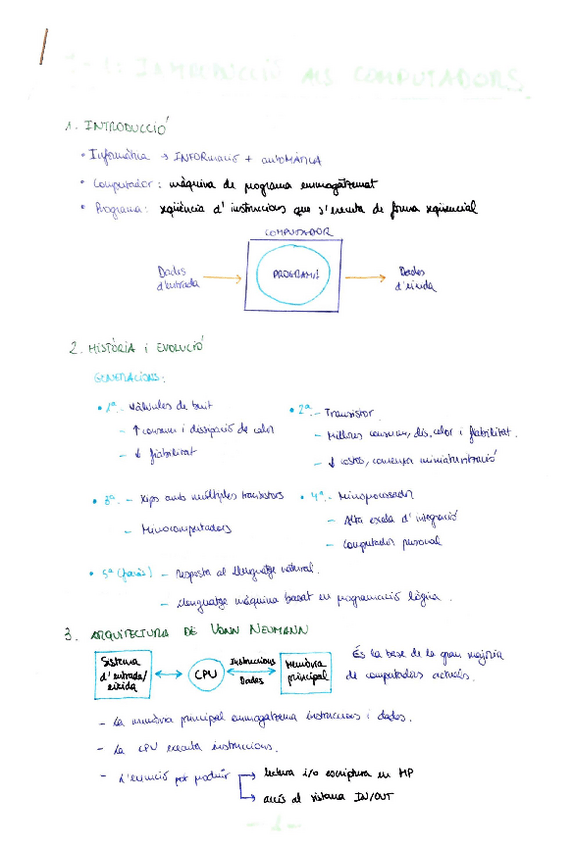 T-1: INTRODUCCIÓ ALS COMPUTADORS
1. INTRODUCCIÓ
• Informàtica → INFORmació + autoMÀTICA
• Computador: màquina de programa emmagatzemat
• Programa: seqüència d'instruccions que s'executa de forma seqüencial
COMPUTADOR
Dades d'entrada → PROGRAMA → Dades d'eixida
2. HISTÒRIA i EVOLUCIÓ
GENERACIONS:
• 1ª. - Vàlvules de buit
- ↑ consum i dissipació de calor
- ↓ fiabilitat
• 2ª. - Transistor
- Millores consum, dis. calor i fiabilitat.
- ↓ costos, comença miniaturització
• 3ª. - Xips amb múltiples transistors
- Minicomputadors
• 4ª. - Microprocesador
- Alta escala d'integració
- Computador personal
• 5ª - resposta al llenguatge natural.
- Llenguatge màquina basat en programació lògica.
3. ARQUITECTURA DE VONN NEUMANN
Sistema d'entrada/eixida
CPU
Instruccions
Dades
Memòria principal
És la base de la gran majoria
de computadors actuals.
- La memòria principal emmagatzema instruccions i dades.
- La CPU executa instruccions.
- L'execució pot produir → lectura i/o escriptura en MP
→ accés al sistema IN/OUT
- 1 -